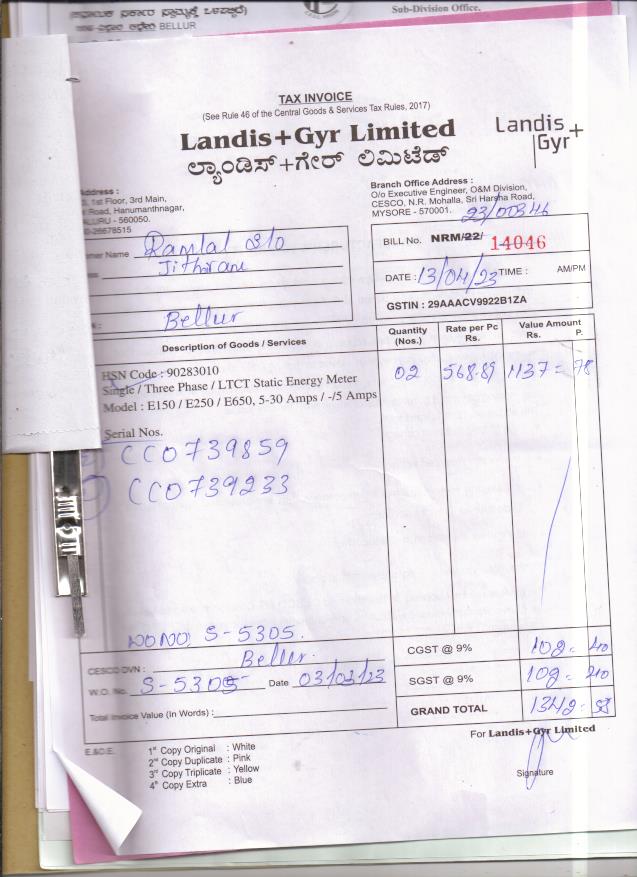 BELLUR
Sub-Division Office.
TAX INVOICE
(See Rule 46 of the Central Goods & Services Tax Rules, 2017)
Landis+Gyr Limited
Landis+
Gyr
ಲ್ಯಾಂಡಿಸ್+ಗೇರ್ ಲಿಮಿಟೆಡ್
Address :
1st Floor, 3rd Main,
Road, Hanumanthnagar,
560050.
26678515
Branch Office Address :
O/o Executive Engineer, O&M Division,
CESCO, N.R. Mohalla, Sri Harsha Road,
MYSORE - 570001.
23/00346
Name Ramlal S/o
BILL No. NRM/22/ 14046
DATE : 13/04/23 TIME : AM/PM
Bellur
GSTIN : 29AAACV9922B1ZA
Description of Goods / Services
Quantity (Nos.)
Rate per Pc Rs.
Value Amount Rs. P.
HSN Code : 90283010
Single / Three Phase / LTCT Static Energy Meter
Model : E150 / E250 / E650, 5-30 Amps / -/5 Amps
02 568.89 1137 = 78
Serial Nos.
CC0739859
CC0739233
WONO, S-5305.
CESCO DVN : Bellur.
CGST @ 9% 102 = 40
W.O. No. S-5305 Date 03/03/23
SGST @ 9% 102 = 40
Total Invoice Value (In Words) :
GRAND TOTAL 1342 = 58
E.&O.E.
For Landis+Gyr Limited
1st Copy Original : White
2nd Copy Duplicate : Pink
3rd Copy Triplicate : Yellow
4th Copy Extra : Blue
Signature